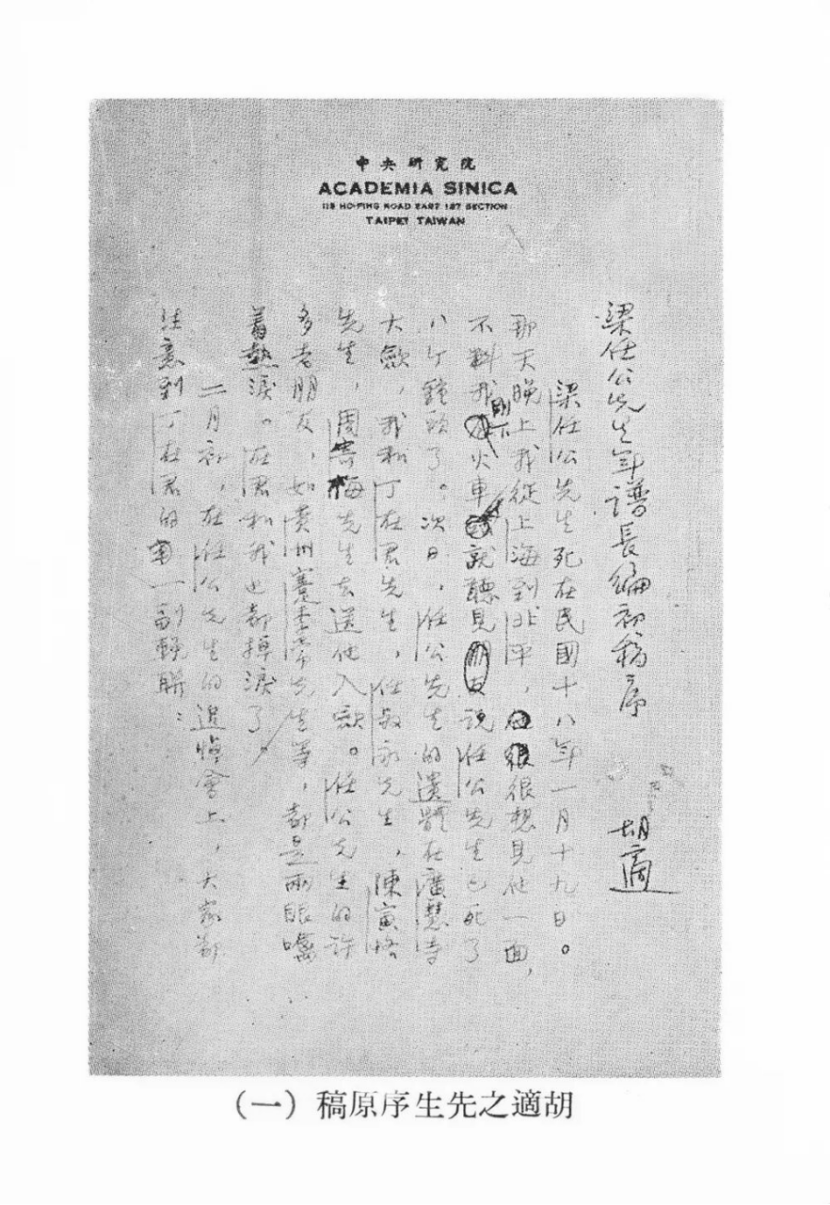 中央研究院
ACADEMIA SINICA
115 HO-PING ROAD EAST 1ST SECTION
TAIPEI TAIWAN
梁任公先生年譜長編初稿序 胡適
梁任公先生死在民國十八年一月十九日。
那天晚上我從上海到北平，很想見他一面，
不料我剛下火車就聽見朋友說任公先生已死了
八個鐘頭了。次日，任公先生的遺體在廣慧寺
大歛，我和丁在君先生，任叔永先生，陳寅恪
先生，周寄梅先生去送他入歛。任公先生的許
多老朋友，如貴州蹇季常先生等，都是兩眼噙
着熱淚。在君和我也都掉淚了。
二月初，在任公先生的追悼會上，大家都
注意到丁在君的一副輓聯：
胡適之先生序原稿（一）